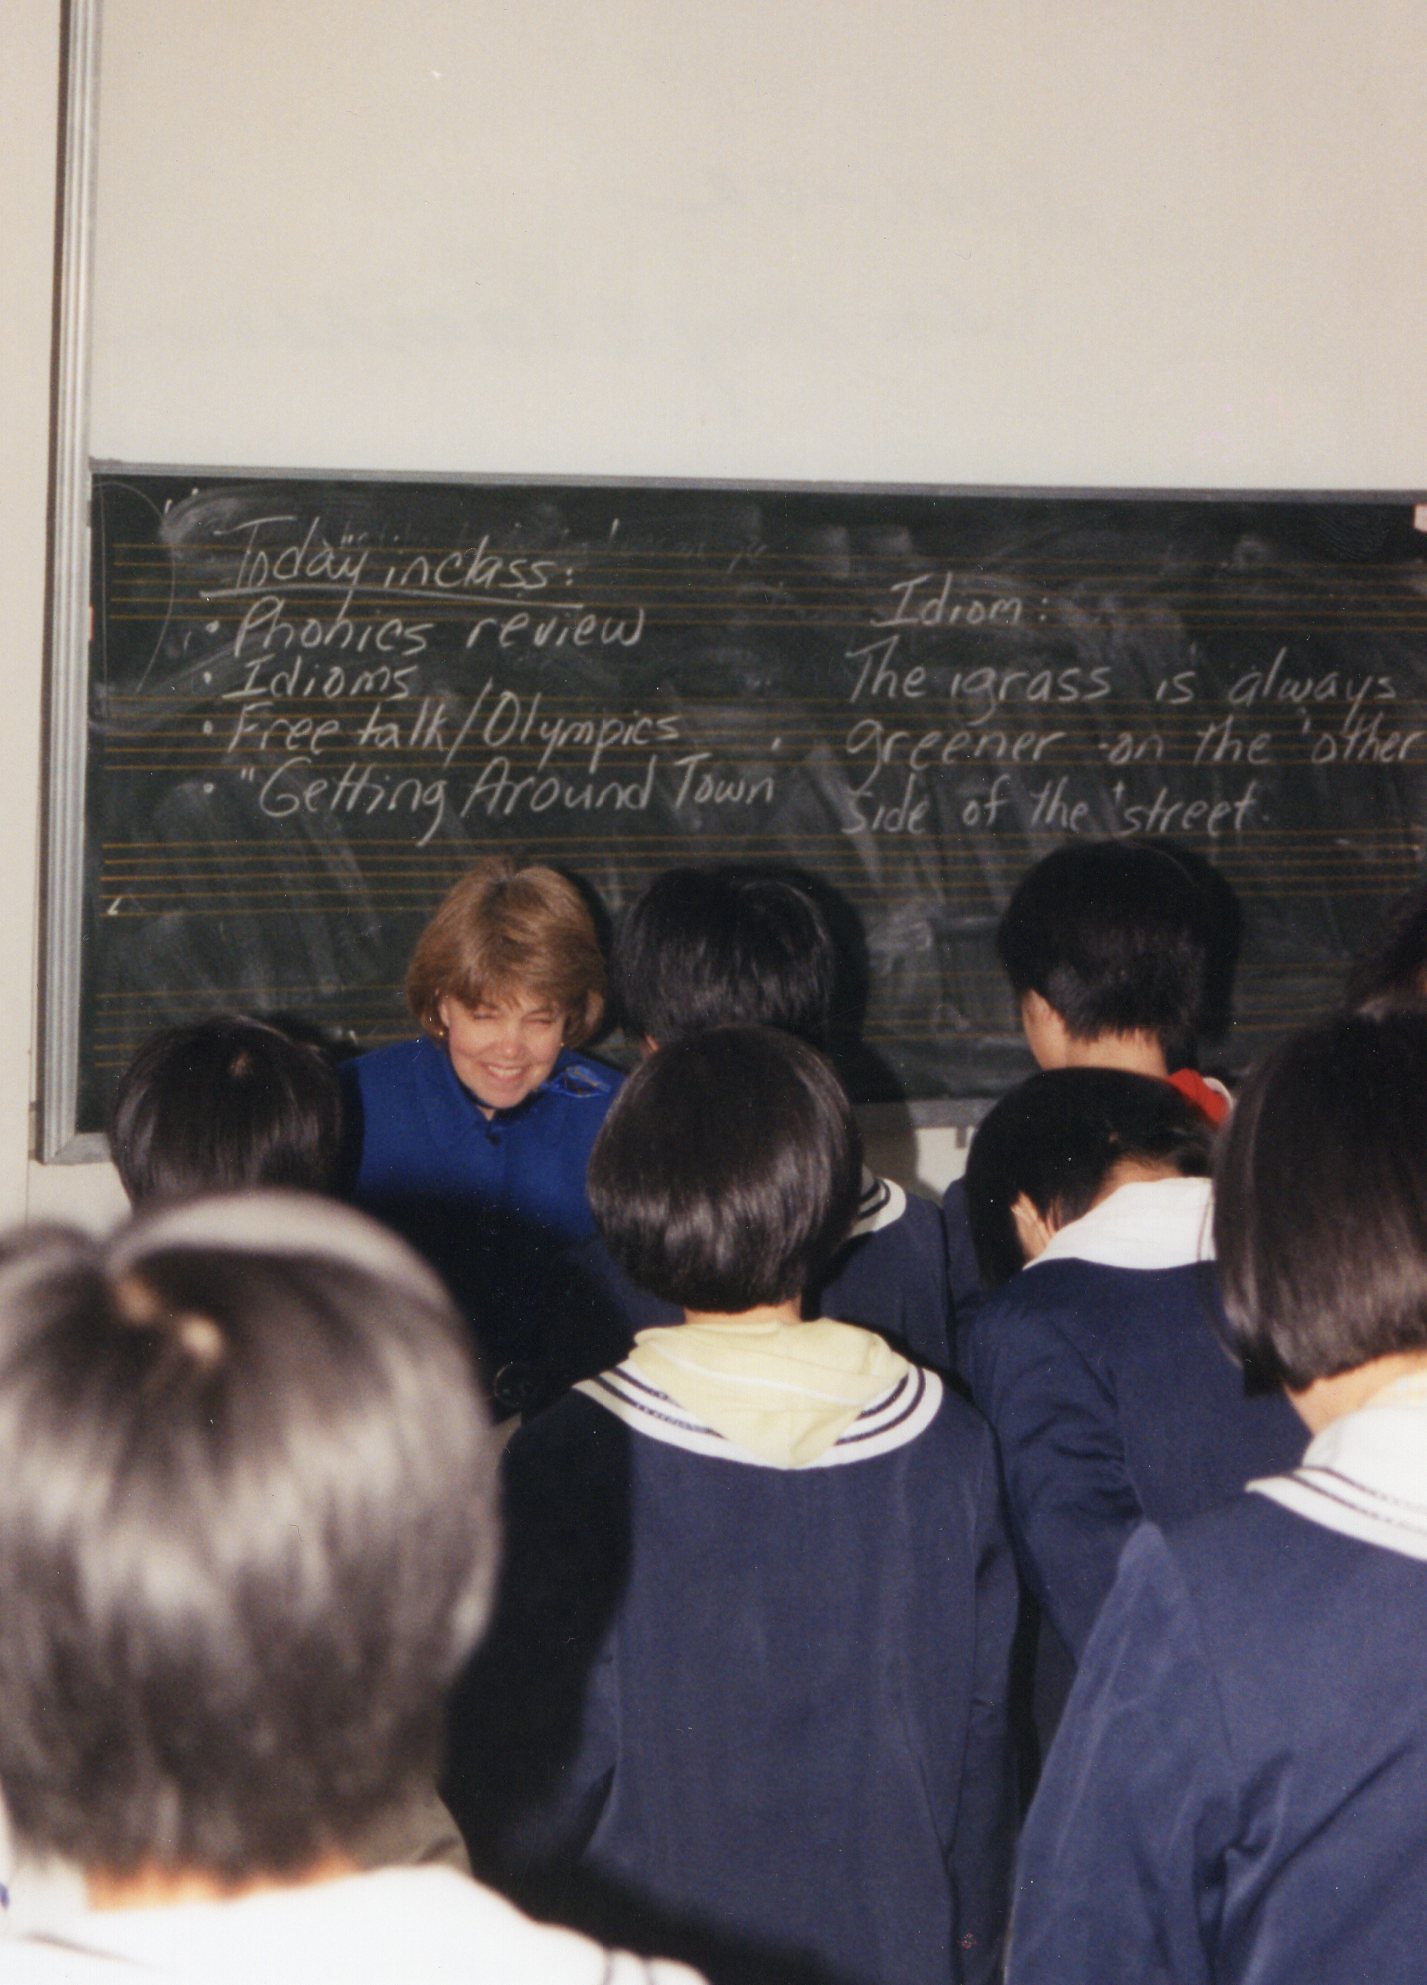 Today in class:
• Phonics review
• Idioms
• Free talk/Olympics
• "Getting Around Town
Idiom:
The grass is always
greener on the other
side of the street.